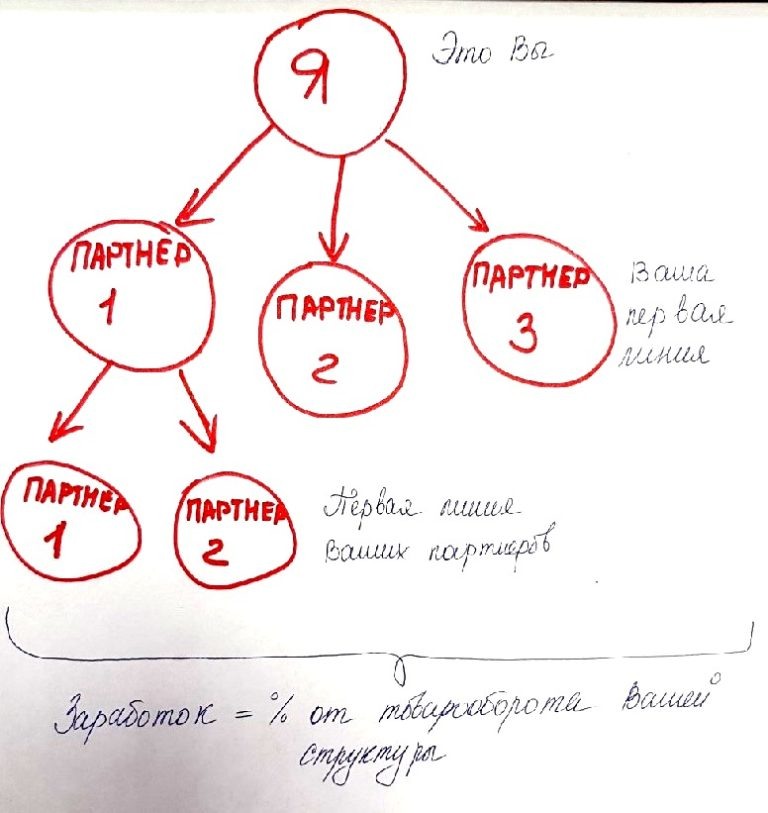 Я
Это Вы
ПАРТНЕР
1
ПАРТНЕР
2
ПАРТНЕР
3
Ваша
первая
линия
ПАРТНЕР
1
ПАРТНЕР
2
Первая линия
Ваших партнеров
Заработок = % от товарооборота Вашей
структуры